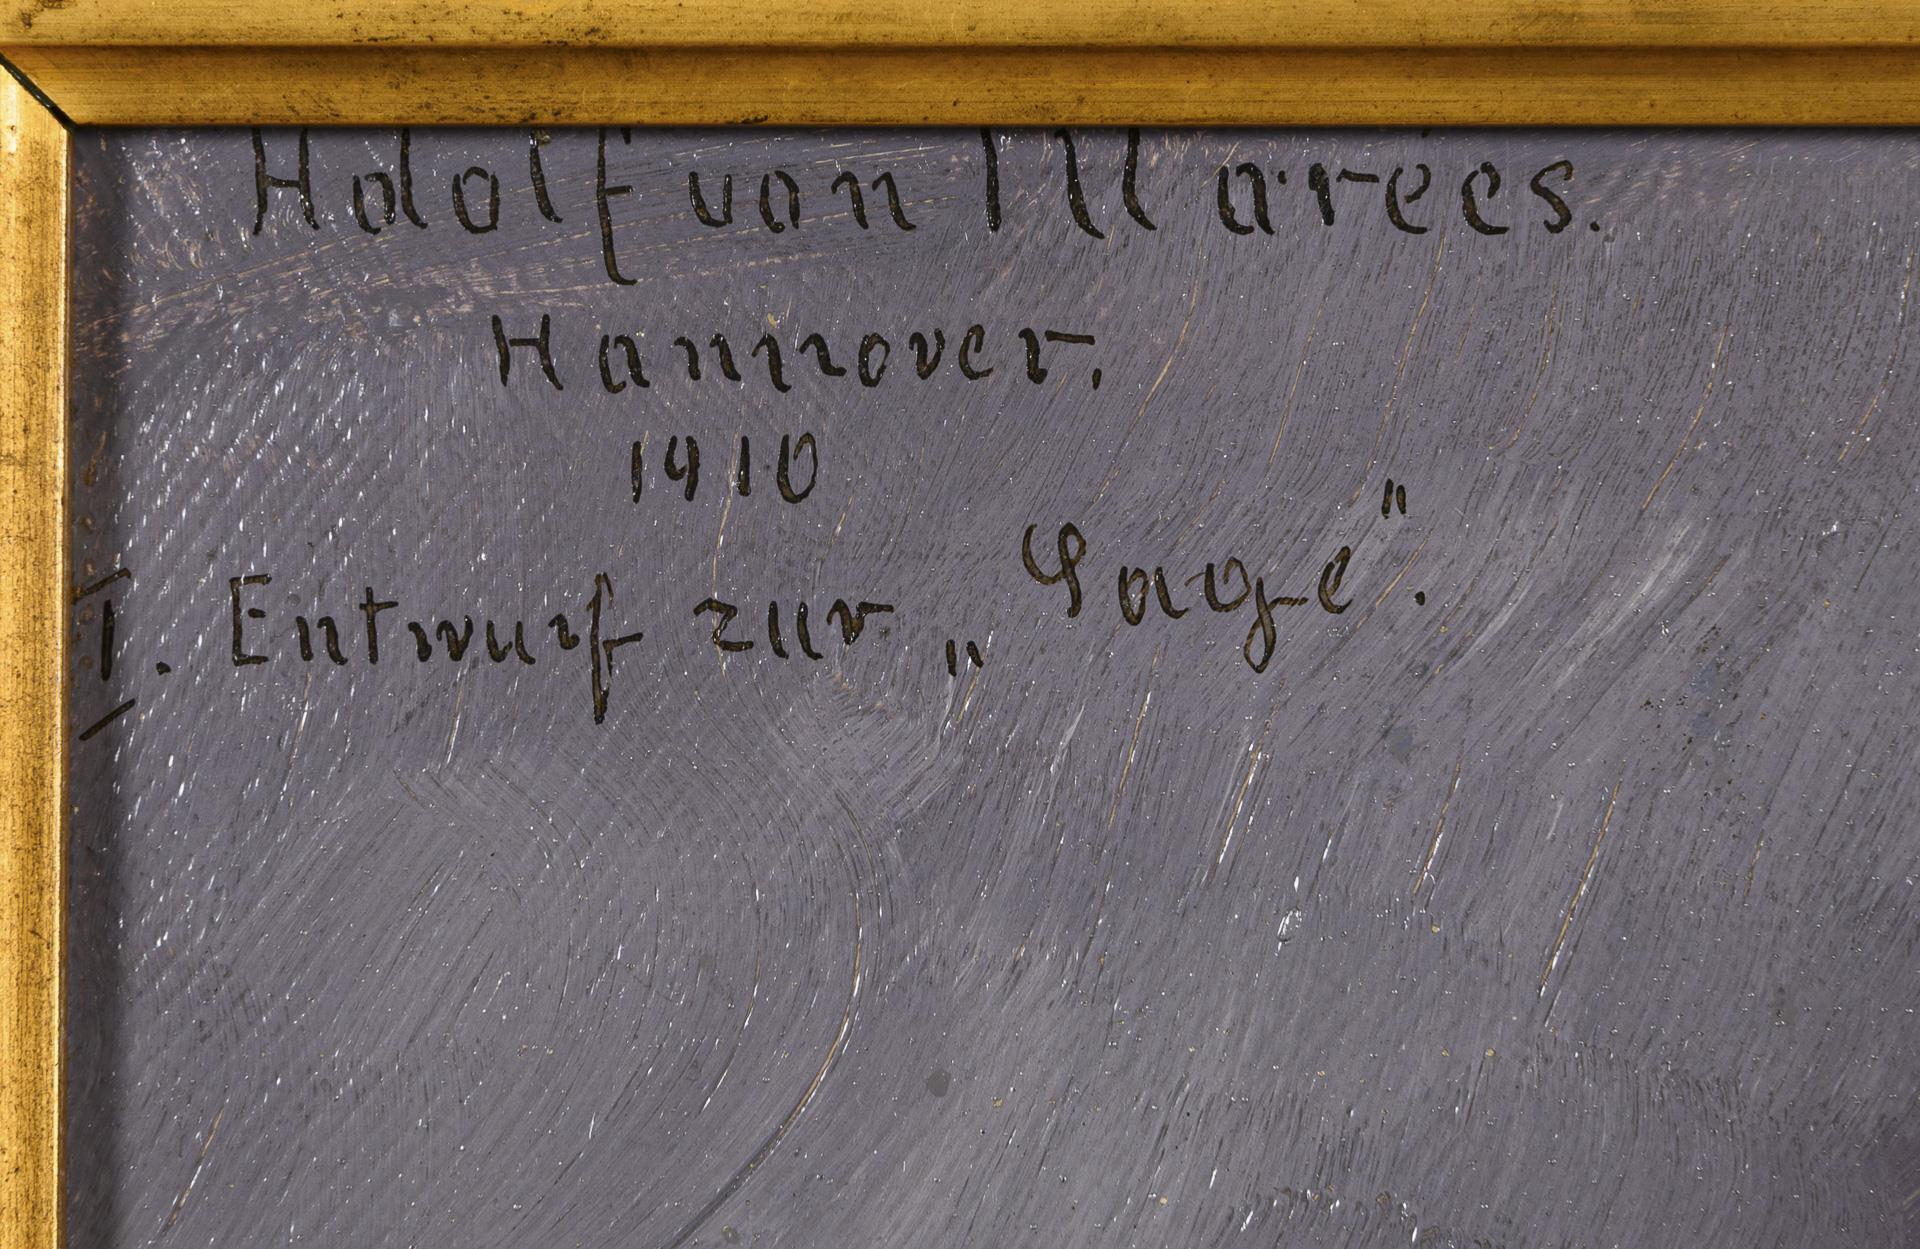 Adolf von Marées.
Hannover.
1910
I. Entwurf zur „Sage".